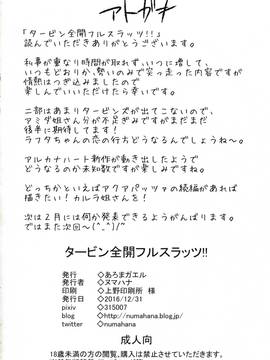 アトガキ
「タービン全開フルスラッツ!!」
読んでいただきありがとうございます。
私事が重なり時間が取れず、いつに増して、
いつもどおりか、勢いのみで突っ走った内容ですが
情熱はつぎ込みましたので
楽しんでいいただけたら幸いです。
二部はあまりタービンズが出てこないので、
アミダ姐さん分が不足ぎみですがまだまだ
後半に期待してます!
ラフタちゃんの恋の行方どうなるんでしょうね〜。
アルカナハート新作が動き出したようで
どうなるのか未知数ですが楽しみです。
どっちかといえばアクアパッツァの続編があれば
描きたい!カルラ姐さんを!
次は2月には何か発表できるようがんばります。
ではまた次回〜(^_^)/~
タービン全開フルスラッツ!!
発行 ◇あろまガエル
発行者 ◇ヌマハナ
印刷 ◇上野印刷所 様
発行日 ◇2016/12/31
pixiv ◇315007
blog ◇http://numahana.blog.jp/
twitter ◇numahana
成人向
18歳未満の方の閲覧,購入は禁止されています。